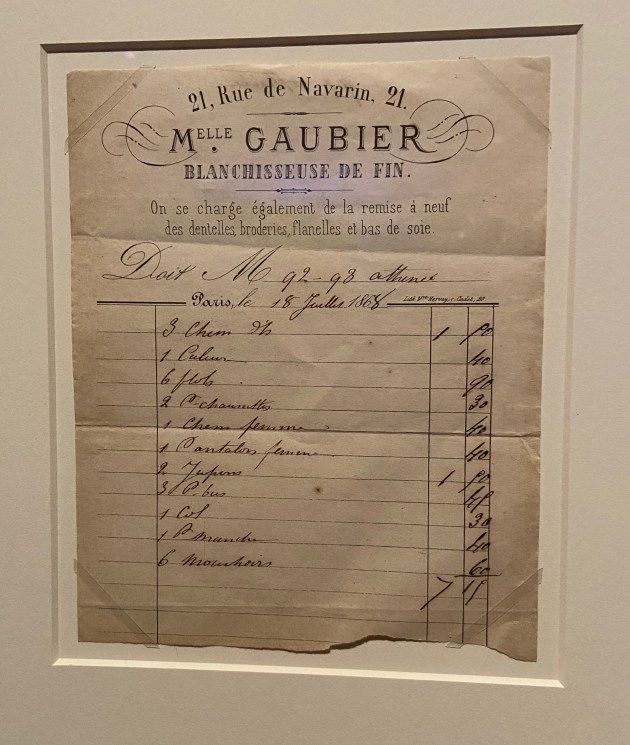 21, Rue de Navarin, 21.
MELLE GAUBIER
BLANCHISSEUSE DE FIN.
On se charge également de la remise à neuf
des dentelles, broderies, flanelles et bas de soie.
Doit M 92-93
Paris, le 18 Juillet 1868
3 Chem d'h 1 50
1 40
6 90
2 P. chaussettes 30
1 Chem femme 40
1 Pantalon femme 40
2 Jupons 1 50
3 P. bas 45
1 Col 30
1 P. manche 40
6 mouchoirs 60
7 15